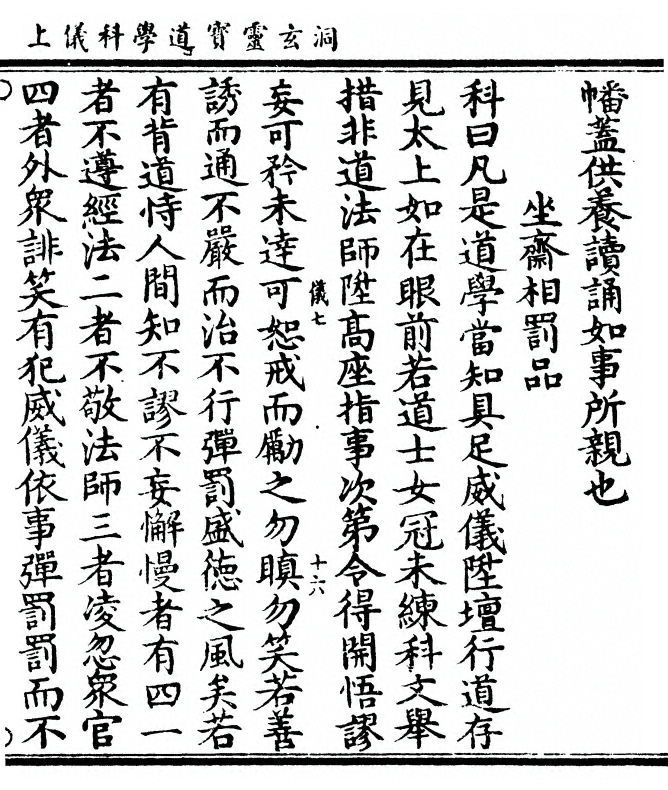 洞玄靈寶道學科儀上
幡蓋供養讀誦如事所親也
坐齋相罰品
科曰凡是道學當知具足威儀陞壇行道存
見太上如在眼前若道士女冠未練科文舉
措非道法師陞高座指事次第令得開悟謬
儀七
十六
妄可矜未達可恕戒而勵之勿瞋勿笑若善
誘而通不嚴而治不行彈罰盛德之風矣若
有背道恃人間知不謬不妄懈慢者有四一
者不遵經法二者不敬法師三者凌忽眾官
四者外眾誹笑有犯威儀依事彈罰罰而不